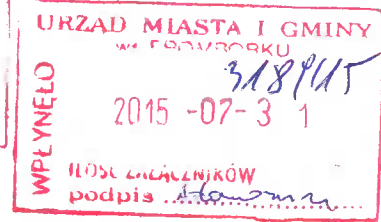 URZĄD MIASTA I GMINY
3189/15
WPŁYNĘŁO
2015 -07- 3 1
ILOŚĆ ZAŁĄCZNIKÓW
podpis